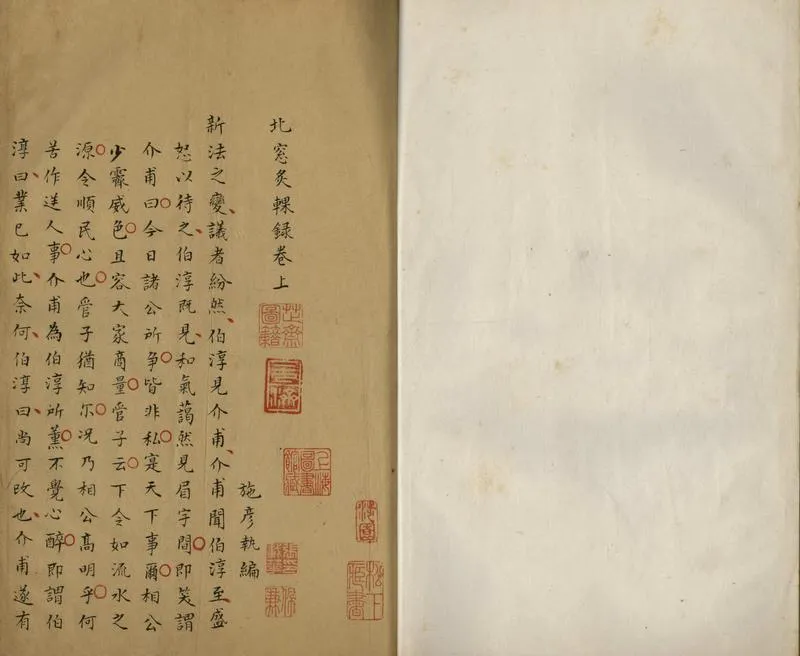 北窓炙輠録卷上
芷齋圖籍
上海圖書館藏
施彦執編
新法之變議者紛然伯淳見介甫介甫聞伯淳至盛
怒以待之伯淳既見和氣藹然見眉宇間即笑謂
介甫曰今日諸公所争皆非私寔天下事爾相公
少霽威色且容大家商量管子云下令如流水之
源令順民心也管子猶知尔况乃相公髙明乎何
苦作逆人事介甫為伯淳所薰不覺心醉即謂伯
淳曰業已如此奈何伯淳曰尚可改也介甫遂有